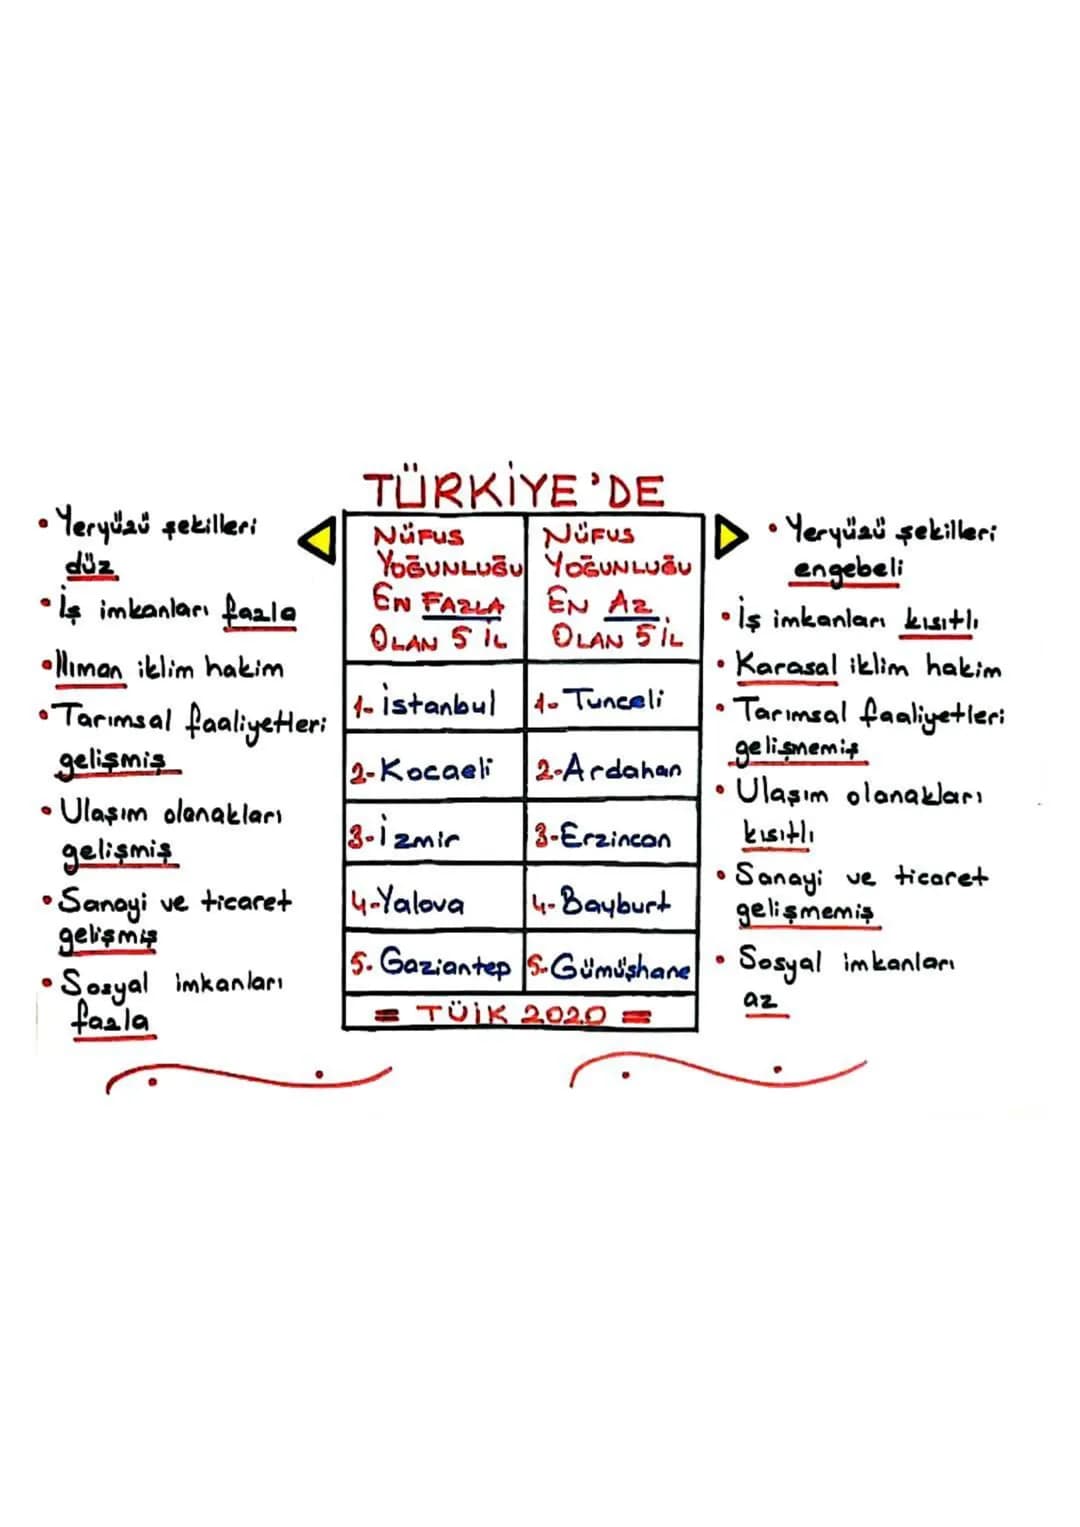 TÜRKİYE'DE
• Yeryüzü şekilleri
düz
• İş imkanları fazla
• Ilıman iklim hakim
• Tarımsal faaliyetleri
gelişmiş
• Ulaşım olanakları
gelişmiş
• Sanayi ve ticaret
gelişmiş
• Sosyal imkanları
fazla
NÜFUS
YOĞUNLUĞU
EN FAZLA
OLAN 5 İL
1- İstanbul
2- Kocaeli
3- İzmir
4- Yalova
5- Gaziantep
NÜFUS
YOĞUNLUĞU
EN AZ
OLAN 5 İL
1- Tunceli
2- Ardahan
3- Erzincan
4- Bayburt
5- Gümüşhane
= TÜİK 2020 =
• Yeryüzü şekilleri
engebeli
• İş imkanları kısıtlı
• Karasal iklim hakim
• Tarımsal faaliyetleri
gelişmemiş
• Ulaşım olanakları
kısıtlı
• Sanayi ve ticaret
gelişmemiş
• Sosyal imkanları
az